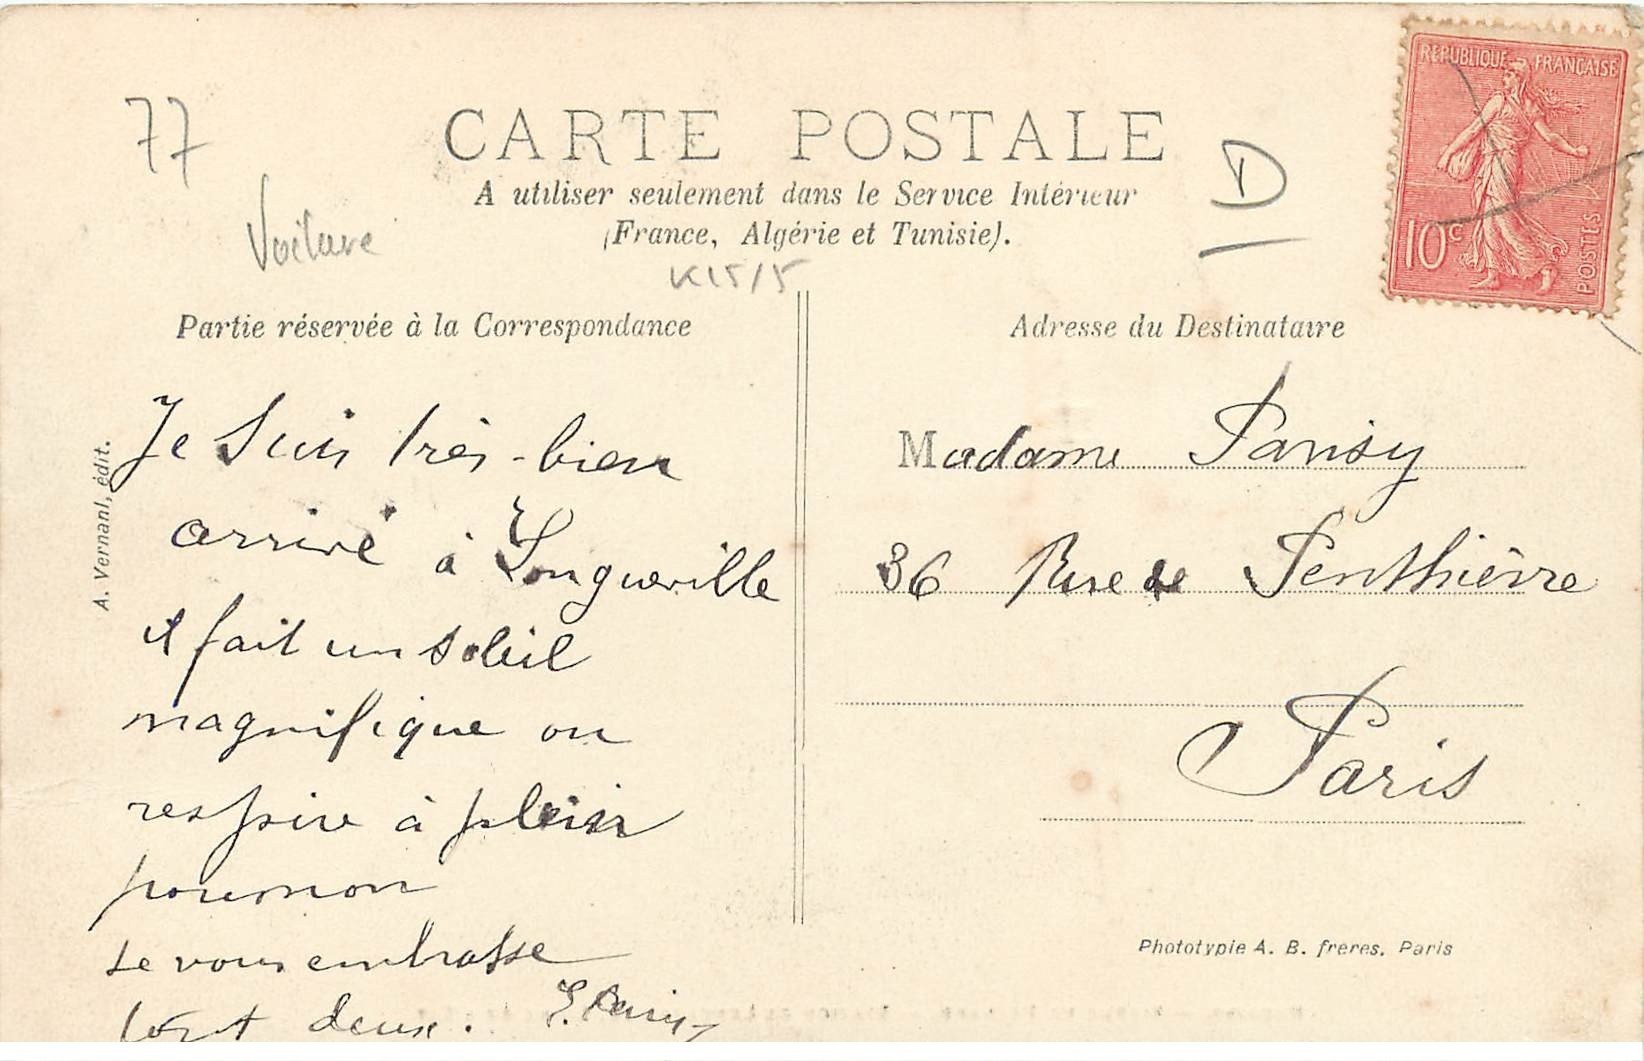 77
CARTE POSTALE
D
A utiliser seulement dans le Service Intérieur
(France, Algérie et Tunisie).
Voiture
K15/5
REPUBLIQUE FRANÇAISE
10c
POSTES
Partie réservée à la Correspondance
Je suis très-bien
arrivé à Longueville
il fait un soleil
magnifique on
respire à plein
poumon
Je vous embrasse
tout deux.
A. Vernant, édit.
Adresse du Destinataire
Madame Parisy
36 Rue de Penthièvre
Paris
Phototypie A. B. frères. Paris